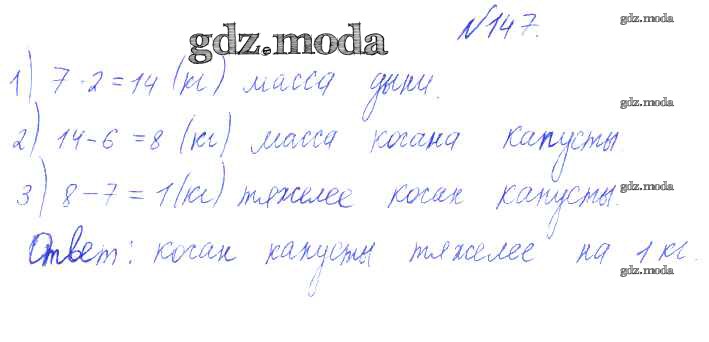 №147.
gdz.moda
gdz.moda
1) 7·2=14 (кг) масса дыни.
gdz.moda
2) 14-6=8 (кг) масса кочана капусты.
3) 8-7=1(кг) тяжелее кочан капусты.
gdz.moda
Ответ: кочан капусты тяжелее на 1 кг.
gdz.moda